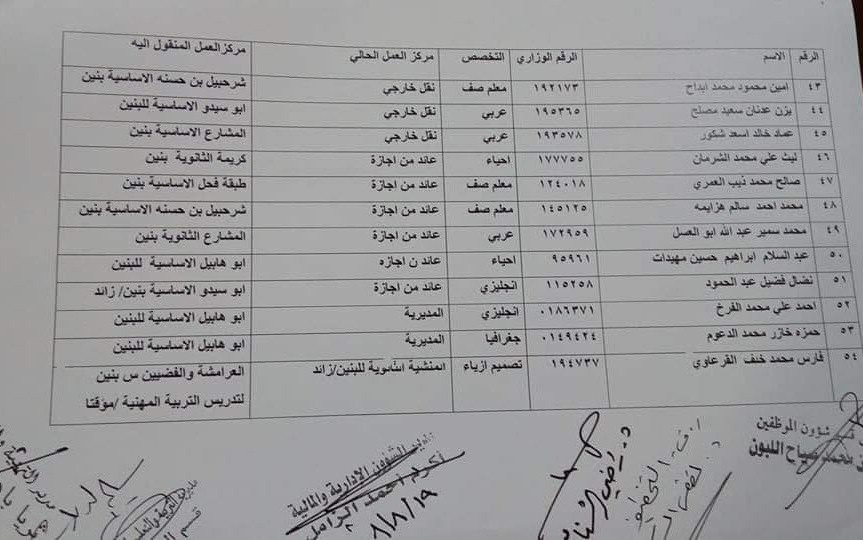 الرقم الاسم الرقم الوزاري التخصص مركز العمل الحالي مركز العمل المنقول اليه
٤٣ امين محمود محمد ابداح ١٩٢١٧٣ معلم صف نقل خارجي شرحبيل بن حسنه الاساسية بنين
٤٤ يزن عدنان سعيد مصلح ١٩٥٣٦٥ عربي نقل خارجي ابو سيدو الاساسية للبنين
٤٥ عماد خالد اسعد شكور ١٩٣٥٧٨ عربي نقل خارجي المشارع الاساسية بنين
٤٦ ليث علي محمد الشرمان ١٧٧٧٥٥ احياء عائد من اجازة كريمة الثانوية بنين
٤٧ صالح محمد ذيب العمري ١٢٤٠١٨ معلم صف عائد من اجازة طبقة فحل الاساسية بنين
٤٨ محمد احمد سالم هزايمه ١٤٥١٢٥ معلم صف عائد من اجازة شرحبيل بن حسنه الاساسية بنين
٤٩ محمد سمير عبد الله ابو العسل ١٧٢٩٥٩ عربي عائد من اجازة المشارع الثانوية بنين
٥٠ عبد السلام ابراهيم حسين مهيدات ٩٥٩٦١ احياء عائد ن اجازه ابو هابيل الاساسية للبنين
٥١ نضال فضيل عبد الحمود ١١٥٢٥٨ انجليزي عائد من اجازة ابو سيدو الاساسية بنين/ زائد
٥٢ احمد علي محمد الفرخ ٠١٨٦٣٧١ انجليزي المديرية ابو هابيل الاساسية للبنين
٥٣ حمزه خازر محمد الدعوم ٠١٤٩٤٢٤ جغرافيا المديرية ابو هابيل الاساسية للبنين
٥٤ فارس محمد خلف القرعاوي ١٩٤٧٣٧ تصميم ازياء المنشية الثانوية للبنين/زائد العرامشة والفضيين س بنين
لتدريس التربية المهنية /مؤقتا
شؤون الموظفين
محمد صياح اللبون
مدير الشؤون الادارية والمالية
اكرم احمد الزامل
٨/٨/١٩
مديرية التربية والتعليم
قسم